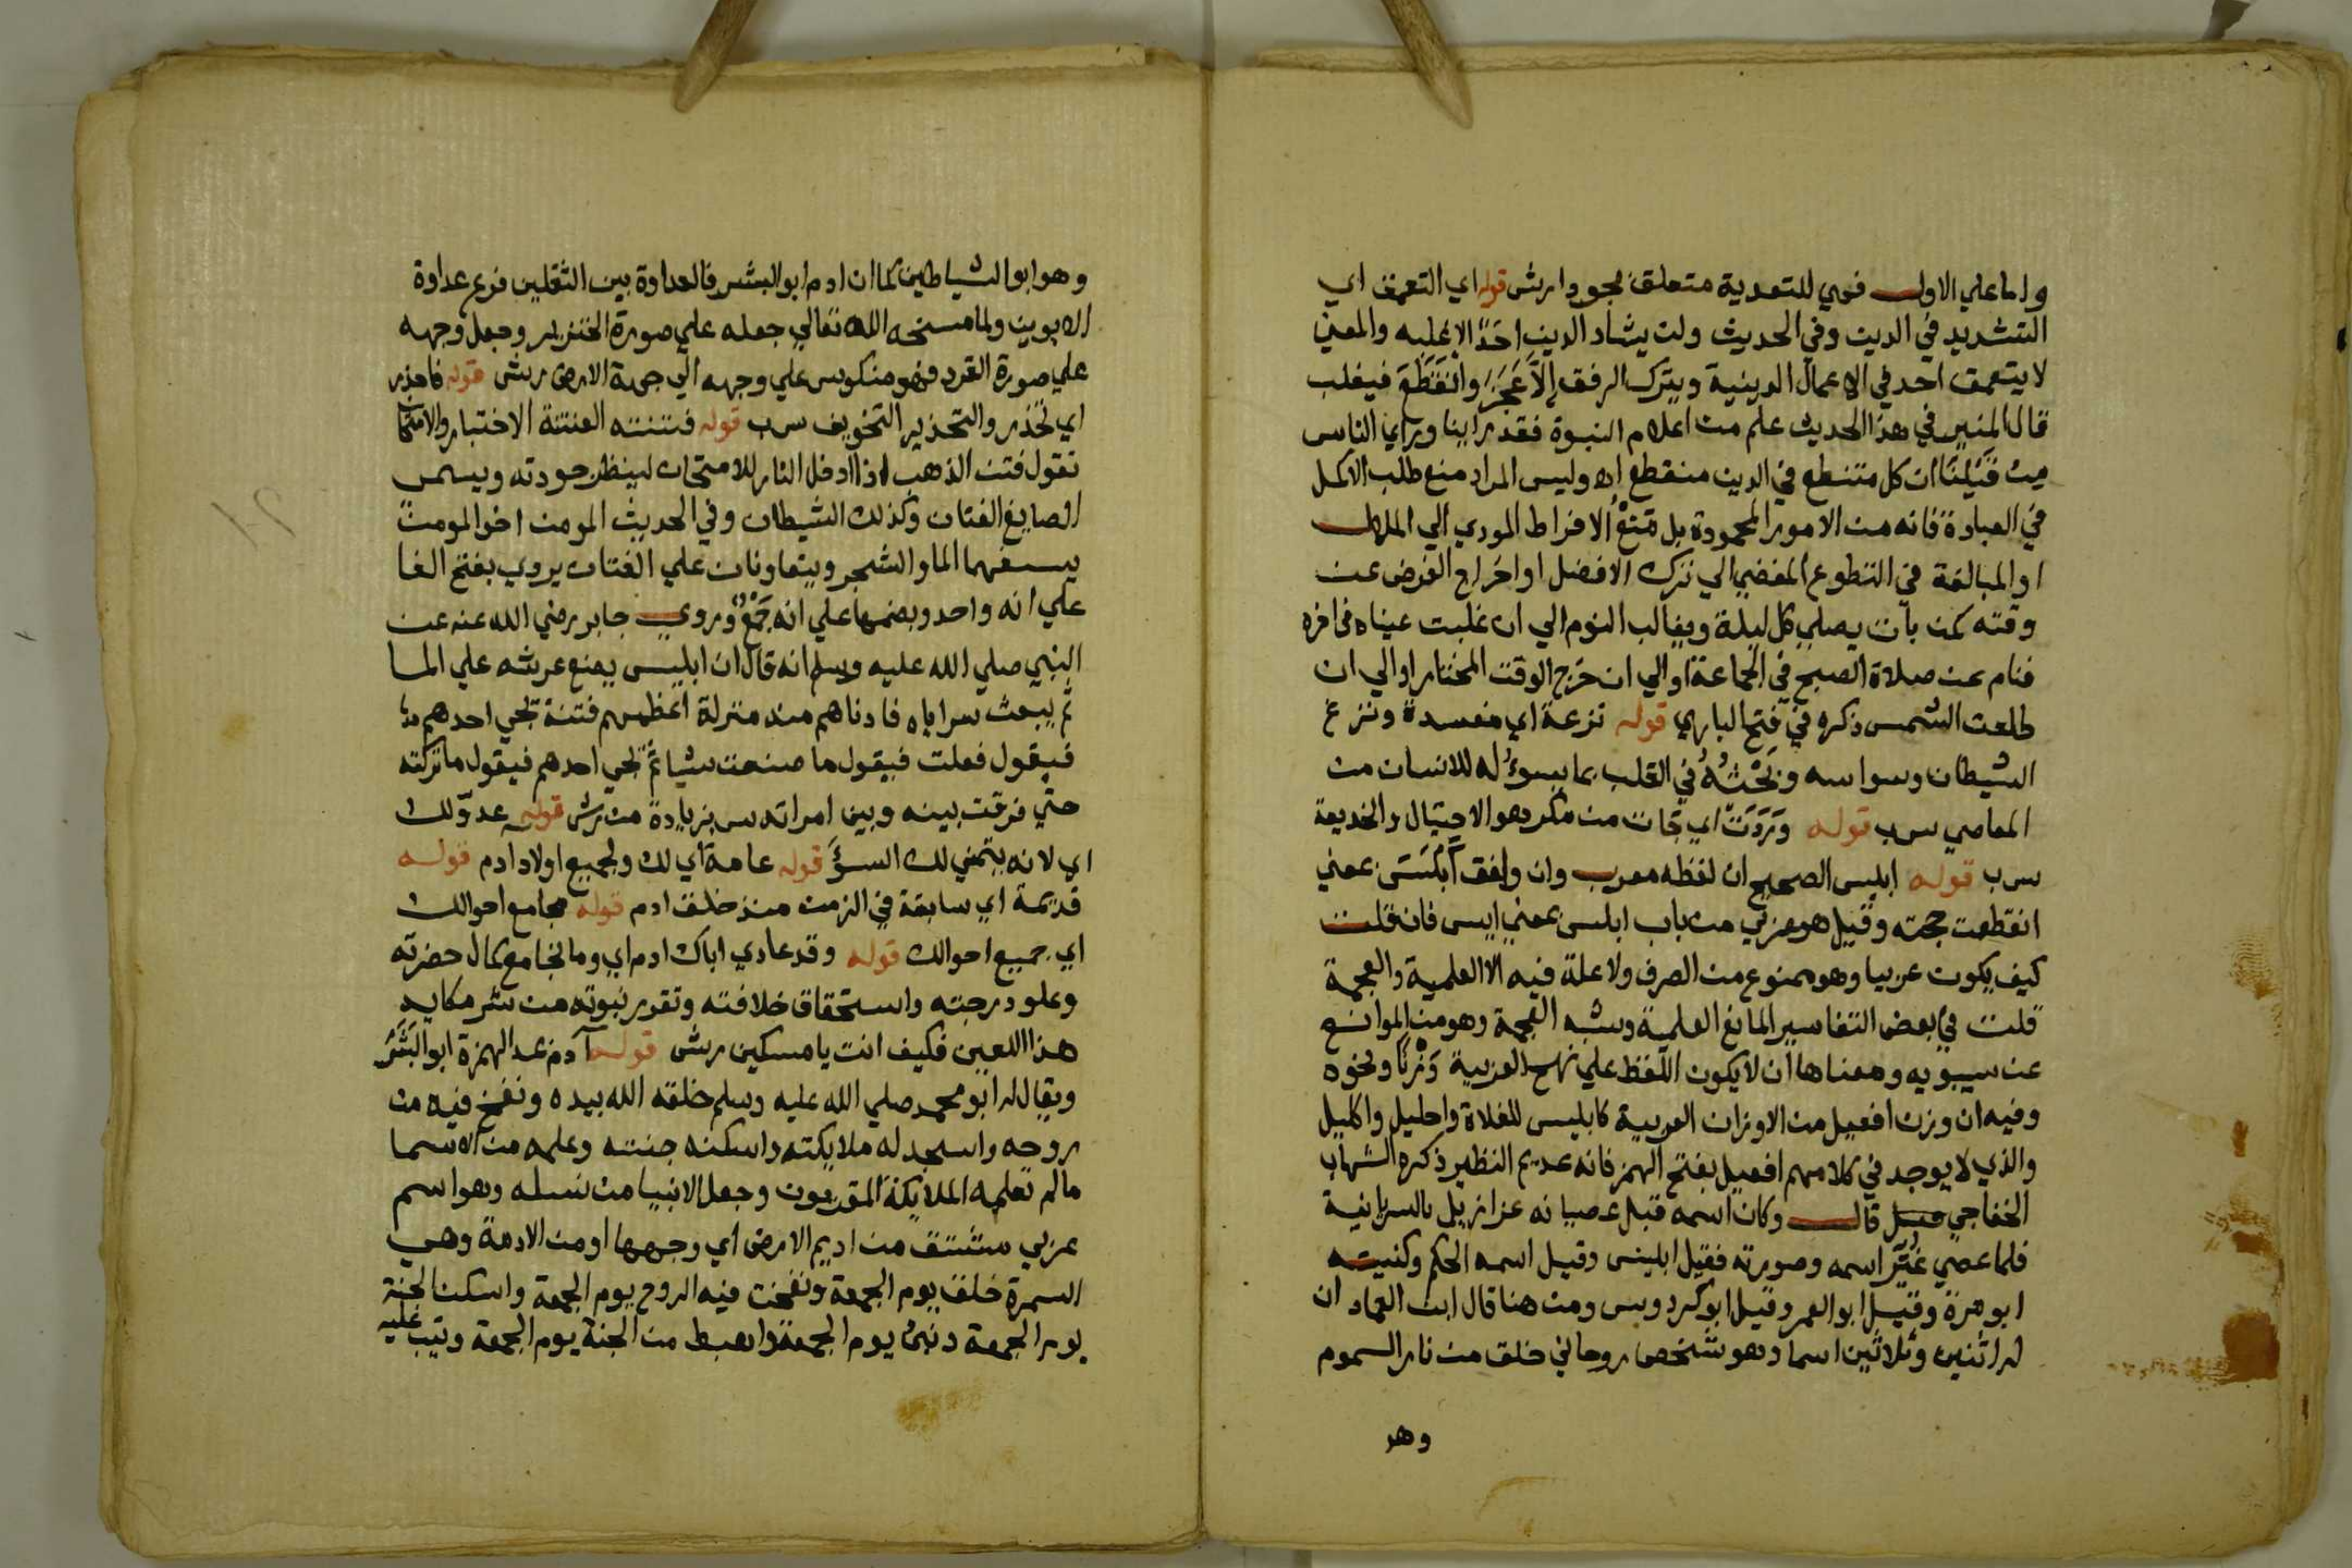 واما علي الاول فهي للتعدية متعلق بجود ارش قوله اي التعمق اي
التشديد في الدين وفي الحديث ولن يشاد الدين احدٌ الا غلبه والمعني
لا يتعمق احد في الاعمال الدينية ويترك الرفق إلاَّ عَجَزَ وانْقَطَعَ فيغلب
قال المنير في هذا الحديث علم من اعلام النبوة فقد راينا وراي الناس
من قَبْلِنَا ان كل متنطع في الدين منقطع اه وليس المراد منع طلب الاكمل
في العبادة فانه من الامور المحمودة بل مَنْعُ الافراط المودي الي الملال
او المبالغة في التطوع المفضي الي ترك الافضل او اخراج الفرض عن
وقته كمن بات يصلي كل ليلة ويغالب النوم الي ان غلبت عيناه في اخره
فنام عن صلاة الصبح في الجماعة او الي ان خرج الوقت المختار او الي ان
طلعت الشمس ذكره في فتح الباري قوله نزغة اي مفسدة ونزغ
الشيطان وسواسه ونَخْسُهُ في القلب بما يسوِّله للانسان من
المعاصي سرب قوله وَرَدَتْ اي جات من مكر وهو الاحتيال والخديعة
سرب قوله ابليس الصحيح ان لفظه معرب وان وافق أَبْلَسَ بمعني
انقطعت حجته وقيل هو عربي من باب ابلس بمعني ايس فان قلت
كيف يكون عربيا وهو ممنوع من الصرف ولا علة فيه الا العلمية والعجمة
قلت في بعض التفاسير المانع العلمية وشبه العجمة وهو من الموانع
عن سيبويه ومعناها ان لا يكون اللفظ علي نهج العربية وَزْنًا ونحوه
وفيه ان وزن افعيل من الاوزان العربية كابليس للفلاة واحليل واكليل
والذي لا يوجد في كلامهم افعيل بفتح الهمز فانه عديم النظير ذكره الشهاب
الخفاجي قال وكان اسمه قبل عصيانه عزازيل بالسريانية
فلما عصي غُيِّرَ اسمه وصورته فقيل ابليس وقيل اسمه الحكم وكنيته
ابو مرة وقيل ابو العمر وقيل ابو كردوس ومن هنا قال ابن العماد ان
له اثنين وثلاثين اسما وهو شخص روحاني خلق من نار السموم
وهو
وهو ابو الشياطين كما ان ادم ابو البشر فالعداوة بين الثقلين فرع عداوة
الابوين ولما مسخه الله تعالي جعله علي صورة الخنزير وجعل وجهه
علي صورة القرد فهو منكوس علي وجهه الي جهة الارض رش قوله فاحذر
اي تحذر والتحذير التخويف سرب قوله فتنته الفتنة الاختبار والامتحان
تقول فتن الذهب اذا ادخل النار للامتحان لينظر جودته ويسمي
الصايغ الفتان وكذلك الشيطان وفي الحديث المومن اخو المومن
يسعهما الما والشجر ويتعاونان علي الفتان يروي بفتح الفا
علي انه واحد وبضمها علي انه جَمْعٌ وروي جابر رضي الله عنه عن
النبي صلي الله عليه وسلم انه قال ان ابليس يضع عرشه علي الما
ثم يبعث سراياه فادناهم منه منزلة اعظمهم فتنة يجي احدهم
فيقول فعلت فيقول ما صنعت شيا ثم يجي احدهم فيقول ما تركته
حتي فرقت بينه وبين امراته س بزيادة من رش قوله عدوّ لك
اي لانه يتمني لك السؤَ قوله عامة اي لك ولجميع اولاد ادم قوله
قديمة اي سابقة في الزمن منذ خلق ادم قوله مجامع احوالك
اي جميع احوالك قوله وقد عادي اباك ادم اي وما نجا مع كمال حضرته
وعلو درجته واستحقاق خلافته وتقرر نبوته من شر مكايد
هذا اللعين فكيف انت يا مسكين رش قوله آدم بمد الهمزة ابو البَشَرْ
ويقال له ابو محمد صلي الله عليه وسلم خلقه الله بيده ونفخ فيه من
روحه واسجد له ملايكته واسكنه جنته وعلمه من الاسما
مالم تعلمه الملايكة المقربون وجعل الانبيا من نسله وهو اسم
عربي مشتق من اديم الارض اي وجهها او من الادمة وهي
السمرة خلق يوم الجمعة ونفخت فيه الروح يوم الجمعة واسكن الجنة
يوم الجمعة ونبئ يوم الجمعة واهبط من الجنة يوم الجمعة وتيب عليه